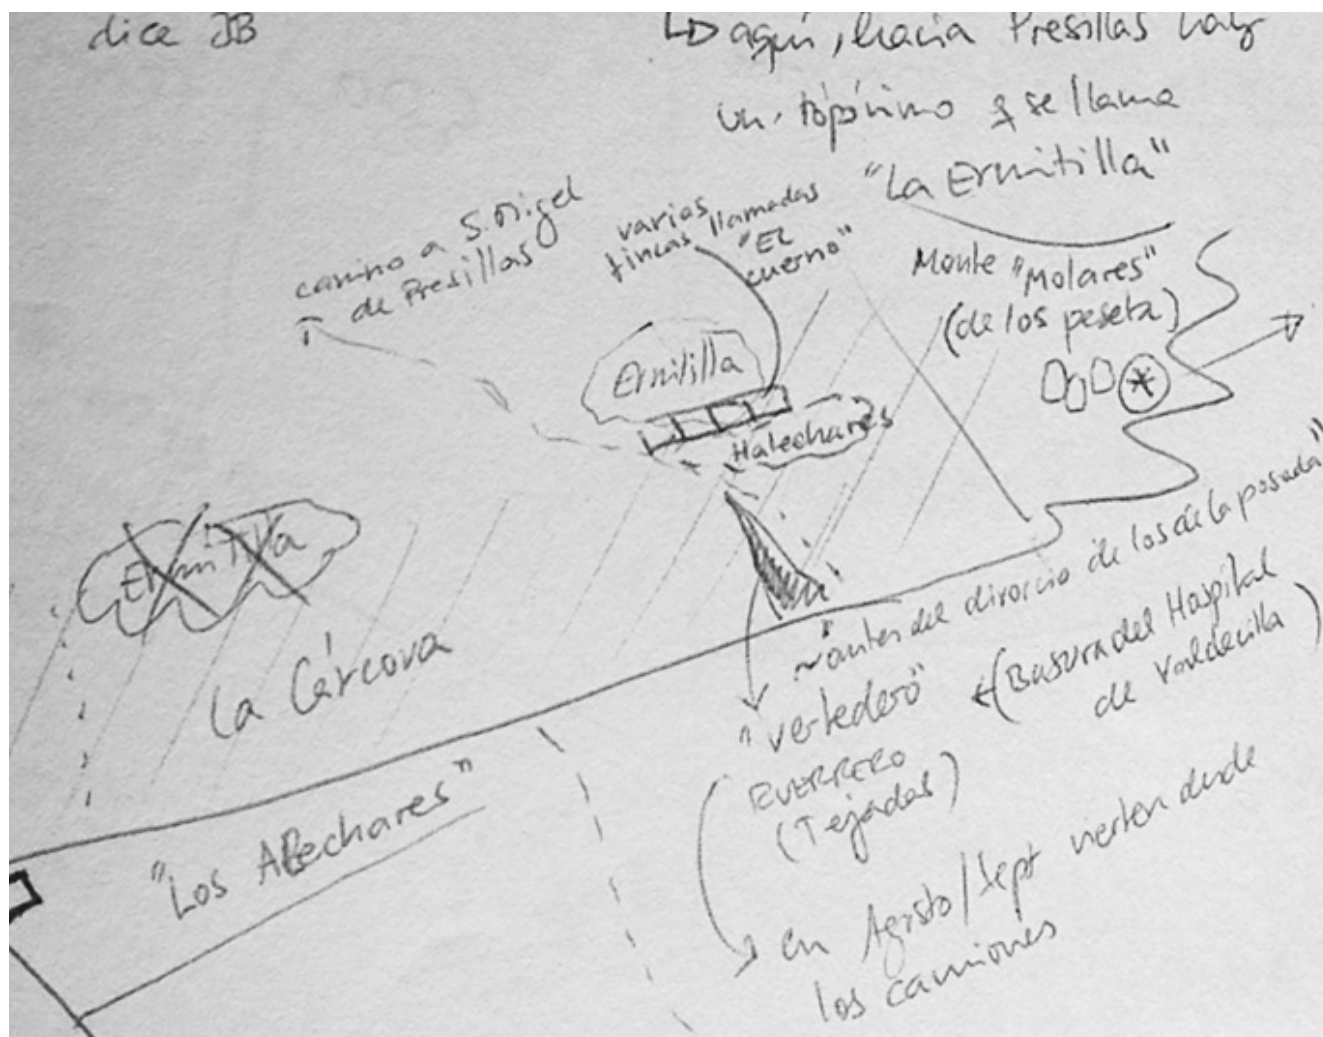 dice JB
aquí, hacia Presillas hay
un topónimo q se llama
"La Ermitilla"
camino a S. Migel
de Presillas
varias
fincas llamadas
"El
cuerno"
Monte "Molares"
(de los peseta)
Ermitilla
Halechares
Ermitilla
La Cárcova
"Los Alechares"
~ antes del divorcio de los de la posada"
"vertedero"
(Basura del Hospital
de Valdecilla)
(Tejadas)
en Agosto/Sept vierten desde
los camiones